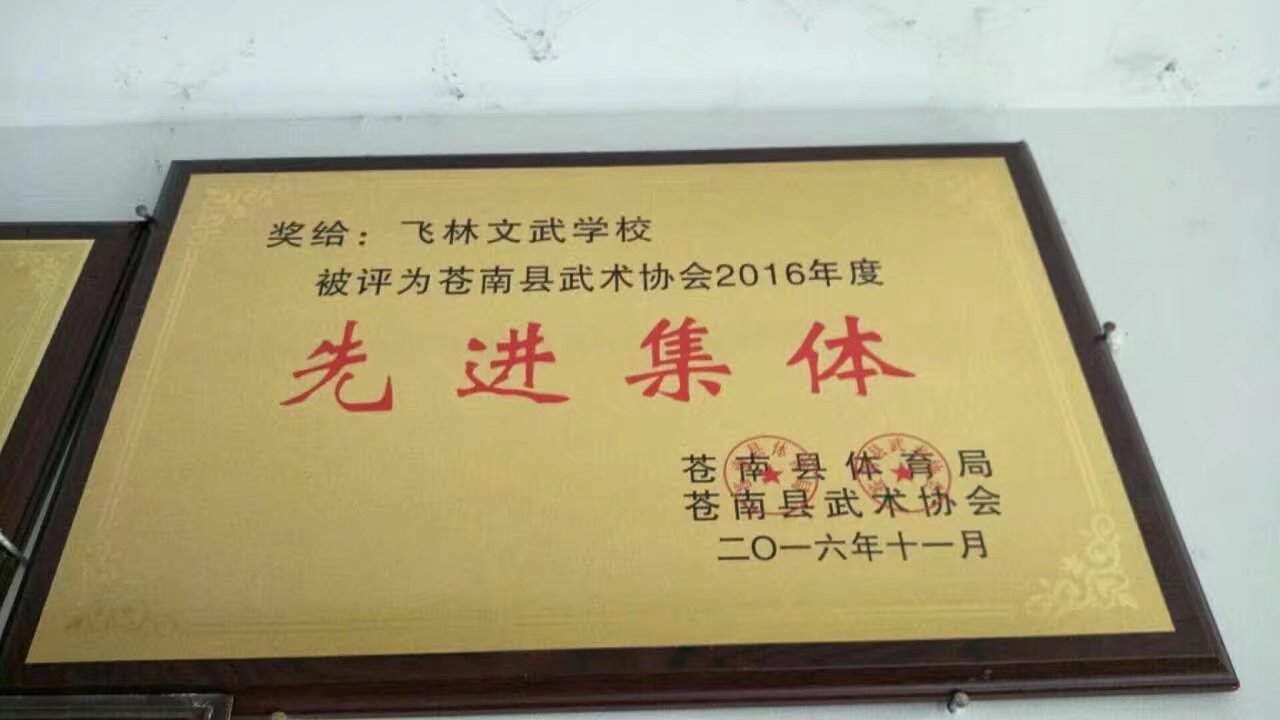 奖给：飞林文武学校
被评为苍南县武术协会2016年度
先进集体
苍南县体育局
苍南县武术协会
二〇一六年十一月